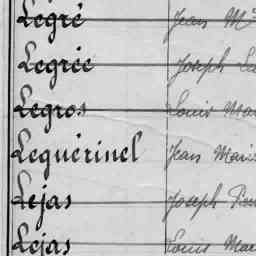 Legré Jean M
Legrée Joseph
Legros Louis
Lequérinel Jean
Lejas Joseph
Lejas Louis